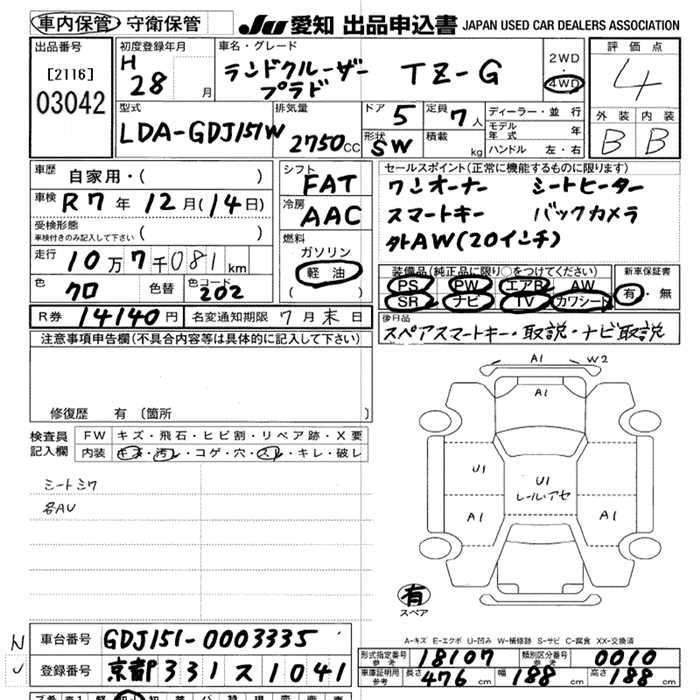 車内保管・守衛保管 JU 愛知 出品申込書 JAPAN USED CAR DEALERS ASSOCIATION
出品番号 [2116] 03042
初度登録年月 H 28 月
車名・グレード ランドクルーザープラド TZ-G
2WD・4WD
評価点 4
外装 B 内装 B
型式 LDA-GDJ151W
排気量 2750 CC
ドア 5 定員 7人
形状 SW 積載 kg
ディーラー・並行
モデル年式 年
ハンドル 左・右
車歴 自家用・( )
車検 R7年12月(14日)
受検形態 車検付きのみ記入して下さい ( )
走行 10万7千081km
色 クロ 色替 色コード 202
シフト FAT
冷房 AAC
燃料 ガソリン 軽油 ( )
セールスポイント(正常に機能するものに限ります)
ワンオーナー シートヒーター
スマートキー バックカメラ
外AW(20インチ)
装備品(純正品に限り○をつけてください)
PS PW エアB AW
SR ナビ TV カワシート
新車保証書 有・無
R券 14140円 名変通知期限 7月末日
後日品 スペアスマートキー・取説・ナビ取説
注意事項申告欄(不具合内容等は具体的に記入して下さい)
修復歴 有(箇所
検査員記入欄 FW キズ・飛石・ヒビ割・リペア跡・X要
内装 キズ・汚レ・コゲ・穴・スレ・キレ・破レ
シートシワ
各AU
A1 W2
A1
U1 U1
レール・アセ
A1 A1
有
スペア
A-キズ E-エクボ U-凹み W-補修跡 S-サビ C-腐食 XX-交換済
N
U
車台番号 GDJ151-0003335
登録番号 京都 331 ス 1041
形式指定番号 参考 18107 類別区分番号 参考 0010
車庫証明用 参考 長さ 476 cm 幅 188 cm 高さ 188 cm